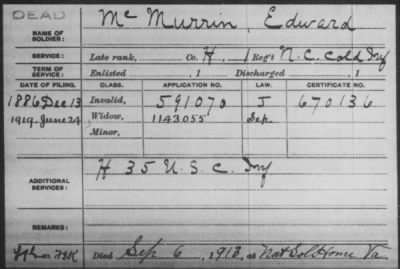 DEAD
NAME OF SOLDIER: Mc Murrin, Edward
SERVICE: Late rank, Co. H, 1 Reg't N.C. Cold Inf
TERM OF SERVICE: Enlisted , 1 Discharged , 1
DATE OF FILING. CLASS. APPLICATION NO. LAW. CERTIFICATE NO.
1886 Dec 13 Invalid, 591070 J 670136
1919. June 24 Widow, 1143055 Sep.
Minor,
ADDITIONAL SERVICES: H 35 U.S.C. Inf
REMARKS:
Died Sep 6, 1913, at Nat Sold Home Va